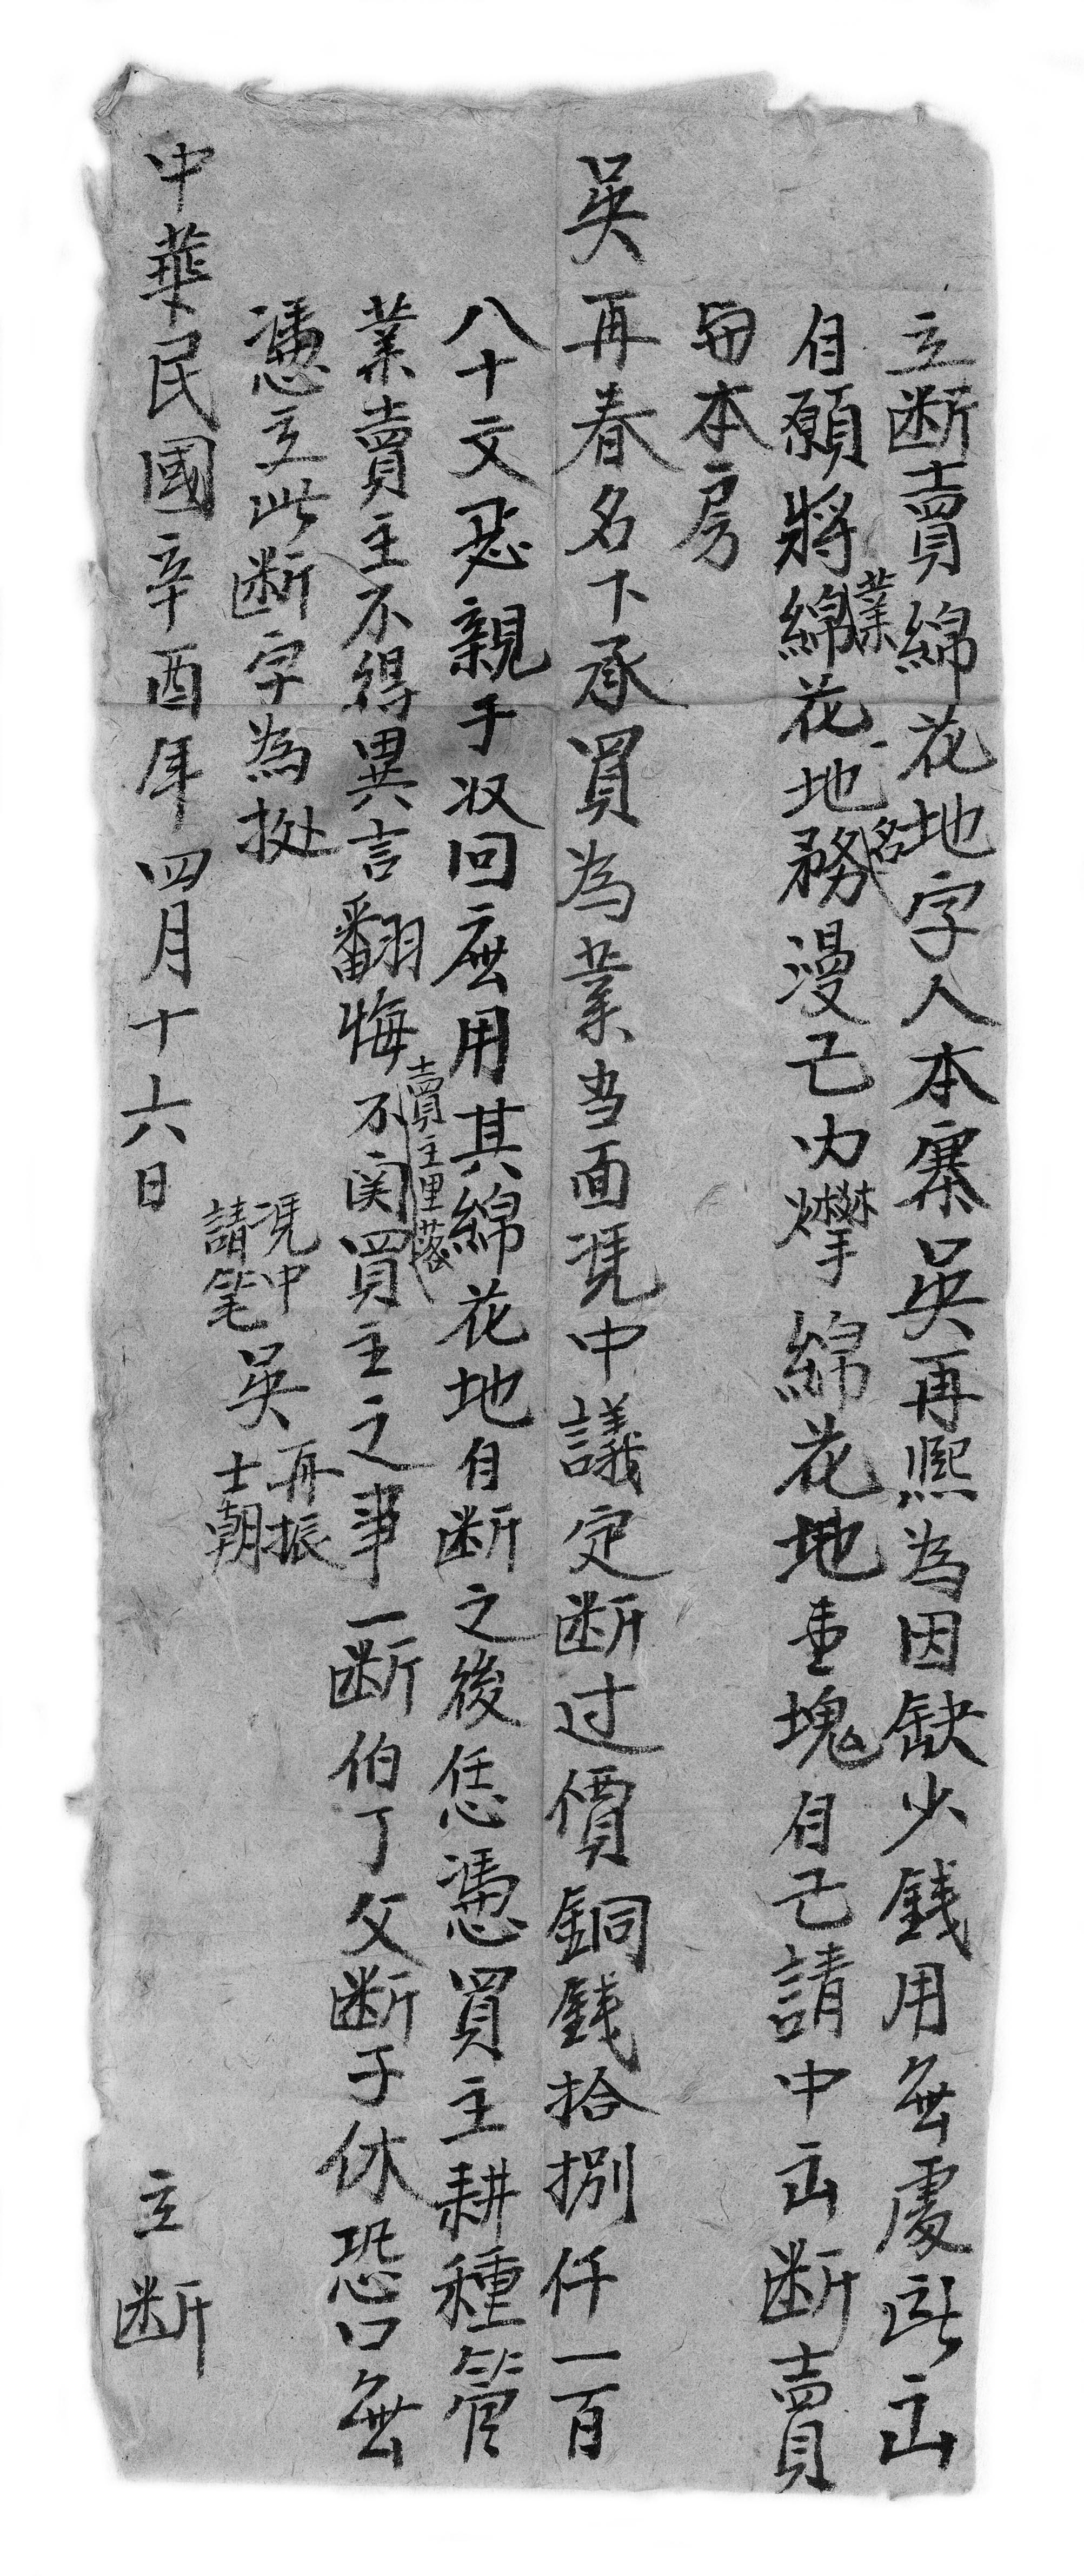 立断賣綿花地字人本寨吳再熙為因缺少錢用無處所出
自願將綿花地務漫己内㭝綿花地壹塊自己請中出断賣
業
一名
與本房
吳再春名下承買為業当面凴中議定断过價銅錢拾捌仟一百
八十文恶親手収回应用其綿花地自断之後恁憑買主耕種管
業賣主不得異言翻悔不関買主之事一断伯了父断子休恐口無
賣主里落
憑立此断字為挺
凴中
請笔
吳
再振
士朝
中華民國辛酉年四月十六日 立断